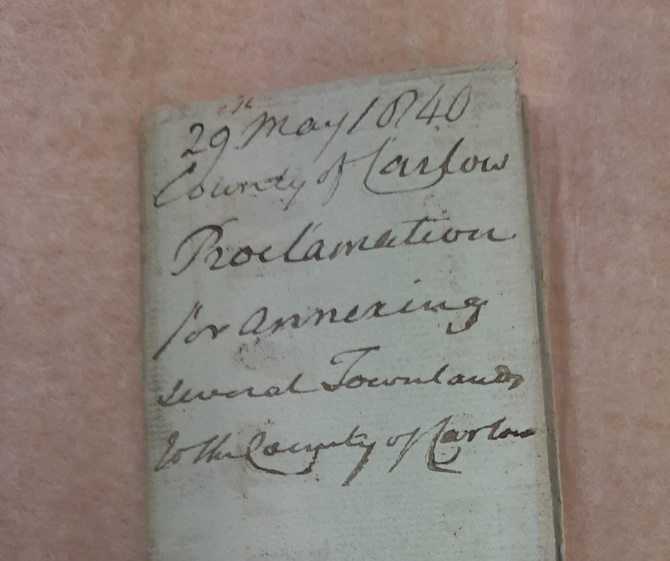 29th May 1840
County of Carlow
Proclamation
for annexing
several Townlands
to the County of Carlow